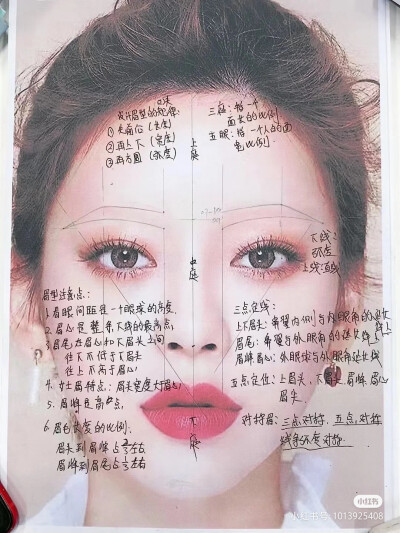 设计眉型的规律:
① 先前后(长度)
② 再上下(宽度)
③ 再方圆(弧度)
三庭:指一个
面长的比例
五眼:指一个人的面
宽比例
上庭
中庭
下庭
下线:
弧度
上线:直线
眉型注意点:
1. 眉眼间距在一个眼球的高度
2. 眉心是整条下线的最高点
3. 眉尾在眉心和下眉头之间
往下不低于下眉头
往上不高于眉心
4. 女士眉特点:眉头宽度大于眉心
5. 眉峰是高点
6. 眉毛长度的比例
眉头到眉峰占⅔左右
眉峰到眉尾占⅓左右
三点定线:
上下眉头:鼻翼内侧与内眼角的连线
眉尾:鼻翼与外眼角的延长线
眉峰眉心:外眼球与外眼角
五点定位:上眉头,下眉头,眉峰,眉心
眉尾
对称眉:三点对称,五点对称
对称
小红书
小红书号:1013925408